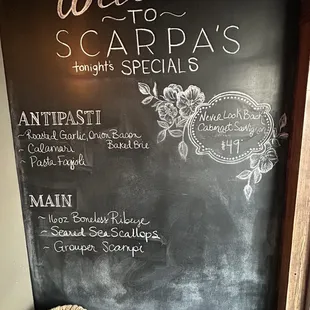 TO
SCARPA'S
tonight's SPECIALS
ANTIPASTI
~ Roasted Garlic, Onion Bacon
Baked Brie
~ Calamari
~ Pasta Fagioli
Never Look Back
Cabernet Sauvignon
~ $49 ~
MAIN
~ 16oz Boneless Ribeye
~ Seared Sea Scallops
~ Grouper Scampi